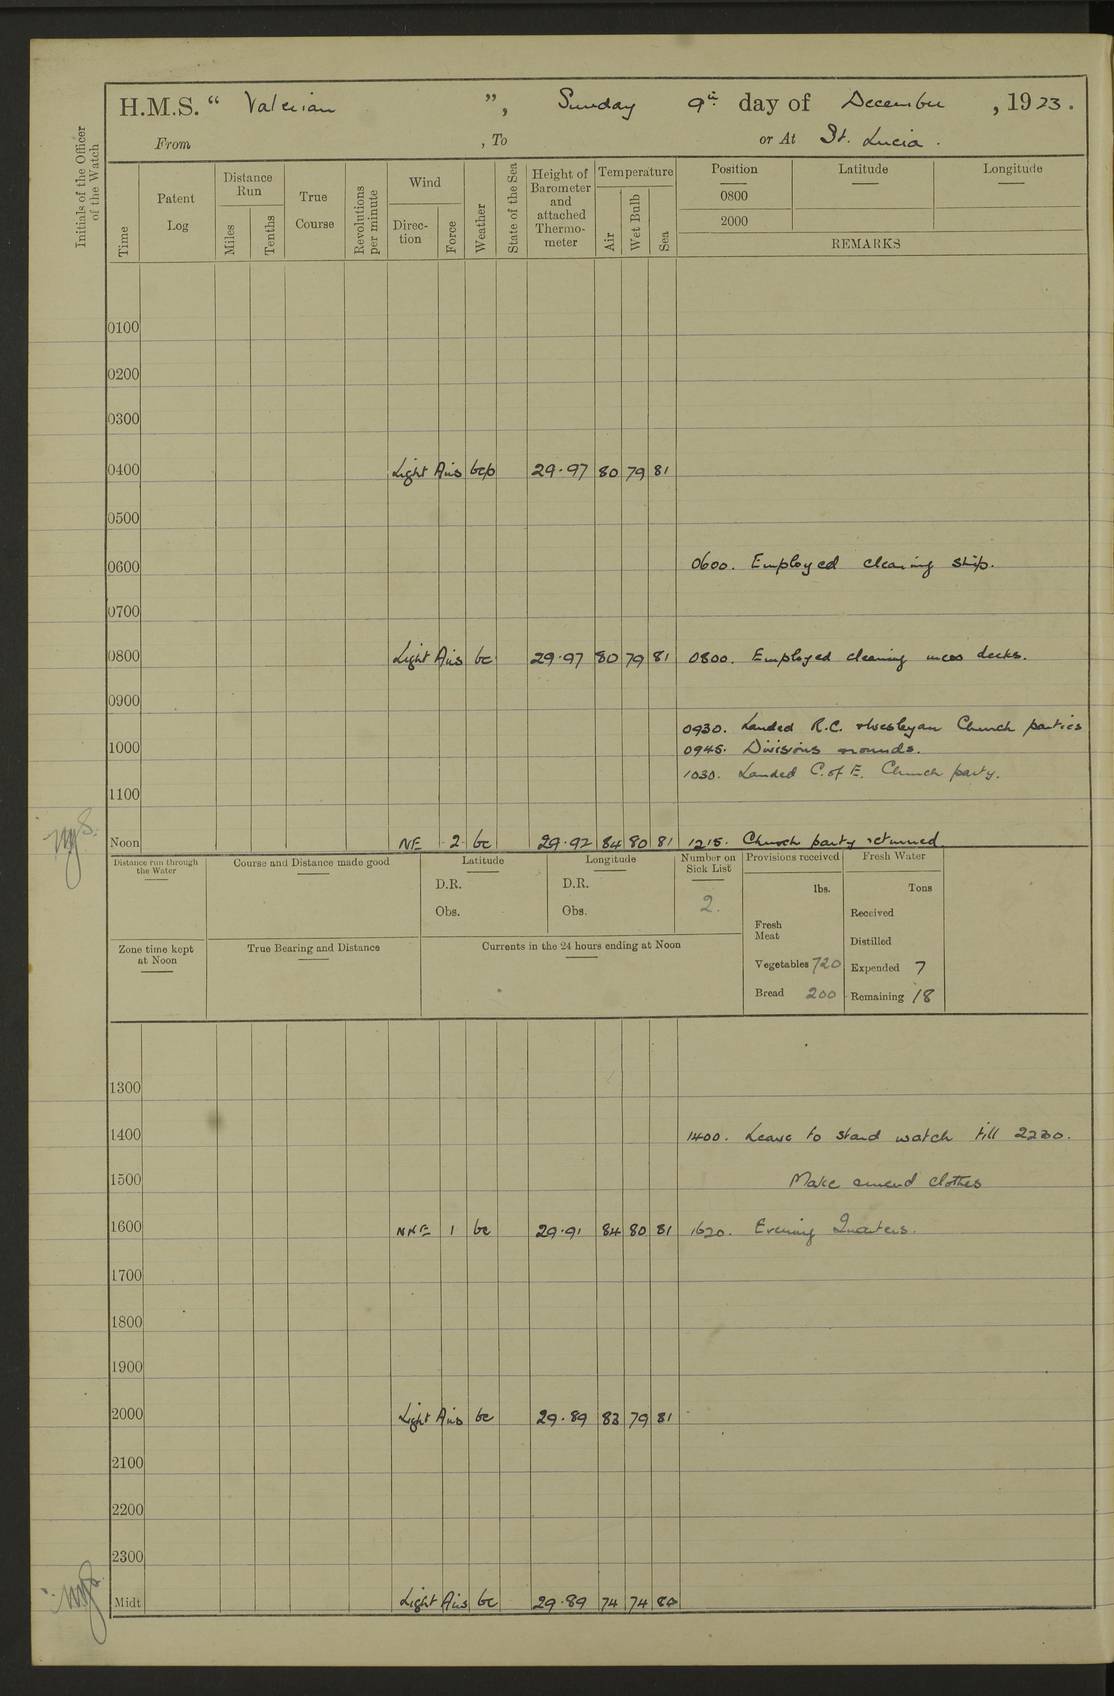 H.M.S. “ Valerian ”, Sunday 9th day of December , 1923.
From , To or At St. Lucia .
Initials of the Officer of the Watch
Time
Patent Log
Distance Run
Miles
Tenths
True Course
Revolutions per minute
Wind
Direc-tion
Force
Weather
State of the Sea
Height of Barometer and attached Thermo-meter
Temperature
Air
Wet Bulb
Sea
Position Latitude Longitude
0800
2000
REMARKS
0100
0200
0300
0400 Light Airs bcp 29·97 80 79 81
0500
0600 0600. Employed cleaning ship.
0700
0800 Light Airs bc 29·97 80 79 81 0800. Employed cleaning mess decks.
0900
0930. Landed R.C. & Wesleyan Church parties
1000 0945. Divisions & rounds.
1030. Landed C. of E. Church party.
1100
Noon NE 2 bc 29·92 84 80 81 1215. Church party returned.
Distance run through the Water
Course and Distance made good
Latitude
D.R.
Obs.
Longitude
D.R.
Obs.
Number on Sick List
2.
Provisions received
lbs.
Fresh Meat
Vegetables 720
Bread 200
Fresh Water
Tons
Received
Distilled
Expended 7
Remaining 18
Zone time kept at Noon
True Bearing and Distance
Currents in the 24 hours ending at Noon
1300
1400 1400. Leave to starbd watch till 2230.
1500 Make & mend clothes
1600 NNE 1 bc 29·91 84 80 81 1620. Evening Quarters.
1700
1800
1900
2000 Light Airs bc 29·89 83 79 81
2100
2200
2300
Midt Light Airs bc 29·89 74 74 80